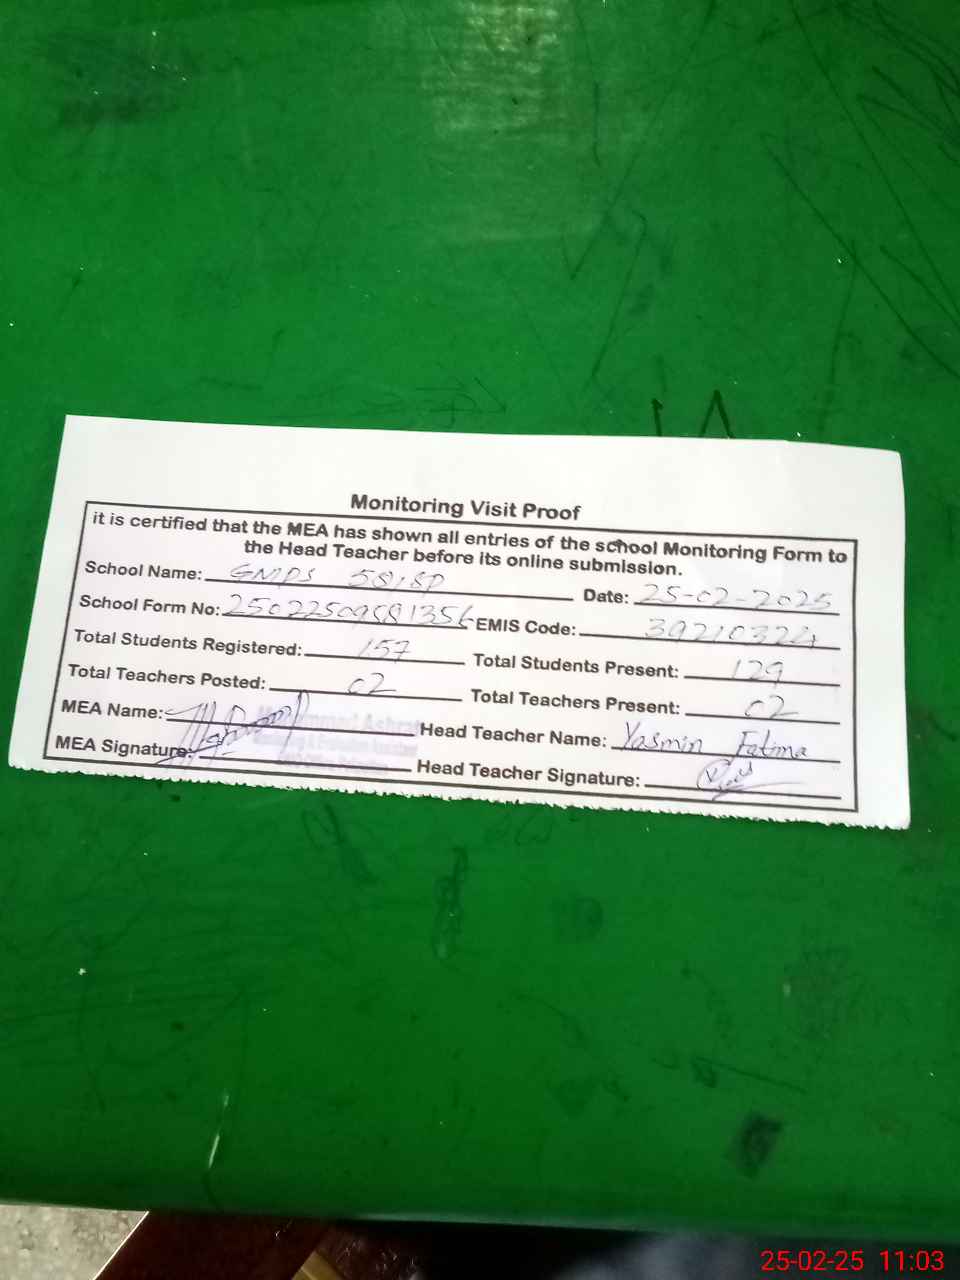 Monitoring Visit Proof
it is certified that the MEA has shown all entries of the school Monitoring Form to
the Head Teacher before its online submission.
School Name: GMPS 58/SP Date: 25-02-2025
School Form No: EMIS Code: 39210324
Total Students Registered: 157 Total Students Present: 129
Total Teachers Posted: 02 Total Teachers Present: 02
MEA Name: Muhammad Ashraf Head Teacher Name: Yasmin Fatima
Monitoring & Evaluation Assistant
MEA Signature: Head Teacher Signature:
25-02-25 11:03